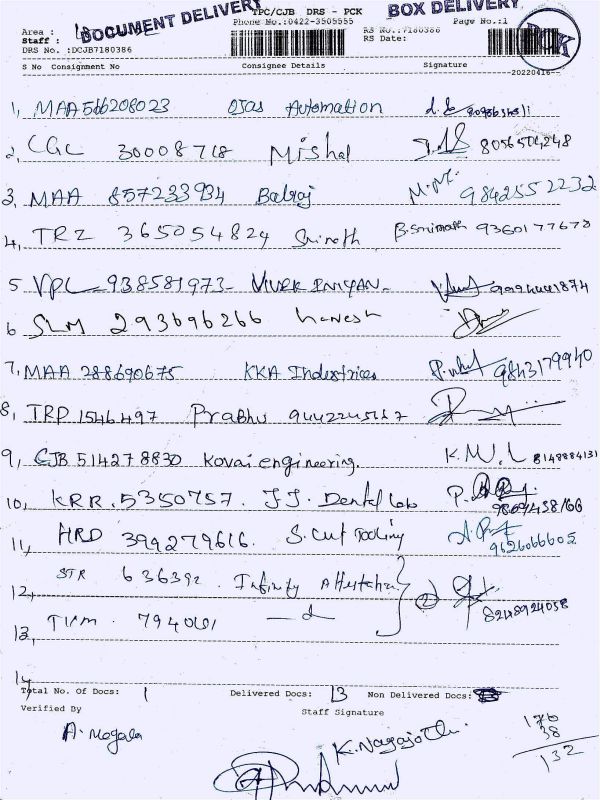 DOCUMENT DELIVERY TPC/CJB DRS - PCK BOX DELIVERY
Area : Phone No.:0422-3505555 RS No.:7180386 Page No.:1
Staff : RS Date: PCK
DRS No. :DCJB7180386
S No Consignment No Consignee Details Signature
20220416
1, MAA 566208023 Ojas Automation
2, CGC 30008718 Mishal 8056504248
3, MAA 857233934 Balraj M.M. 9842552232
4, TRZ 365054824 Srinath B.Srinath 9360177678
5 VPL 938581973- VIVEK INIYAN-
6 SLM 293696266 harvesh
7, MAA 288690675 KKA Industries 9843179940
8, TRP 1546497 Prabhu
9, CJB 514278830 Kovai engineering. K.M.L 8148884131
10, KRR. 5350757. J J. Dental Lab
11, HRD 399279616. S. Cut Tooling 9626066605
12, STR 636392. Infinity Attestation 2 8248924058
13, TVM. 794061
14,
Total No. Of Docs: 1 Delivered Docs: 13 Non Delivered Docs:
Verified By Staff Signature
A. Megala K. Nagajothi.
176
38
132